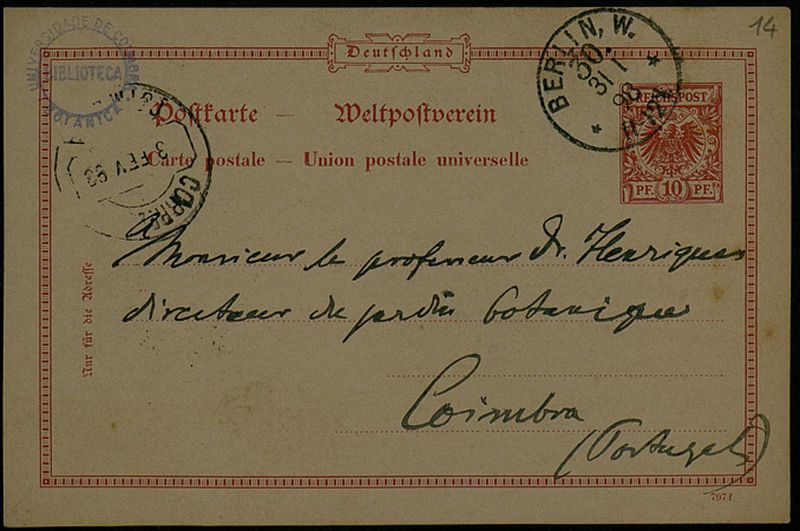 14
UNIVERSIDADE DE COIMBRA
BIBLIOTECA
BOTANICA
Deutschland
BERLIN, W.
30.
31 1
93
REICHSPOST
10
PF. PF.
Postkarte — Weltpostverein
Carte postale — Union postale universelle
3 FEV 93
CORRE
A
Monsieur le professeur Dr. Henriques
directeur du jardin botanique
Coimbra
(Portugal)
Nur für die Adresse
797f